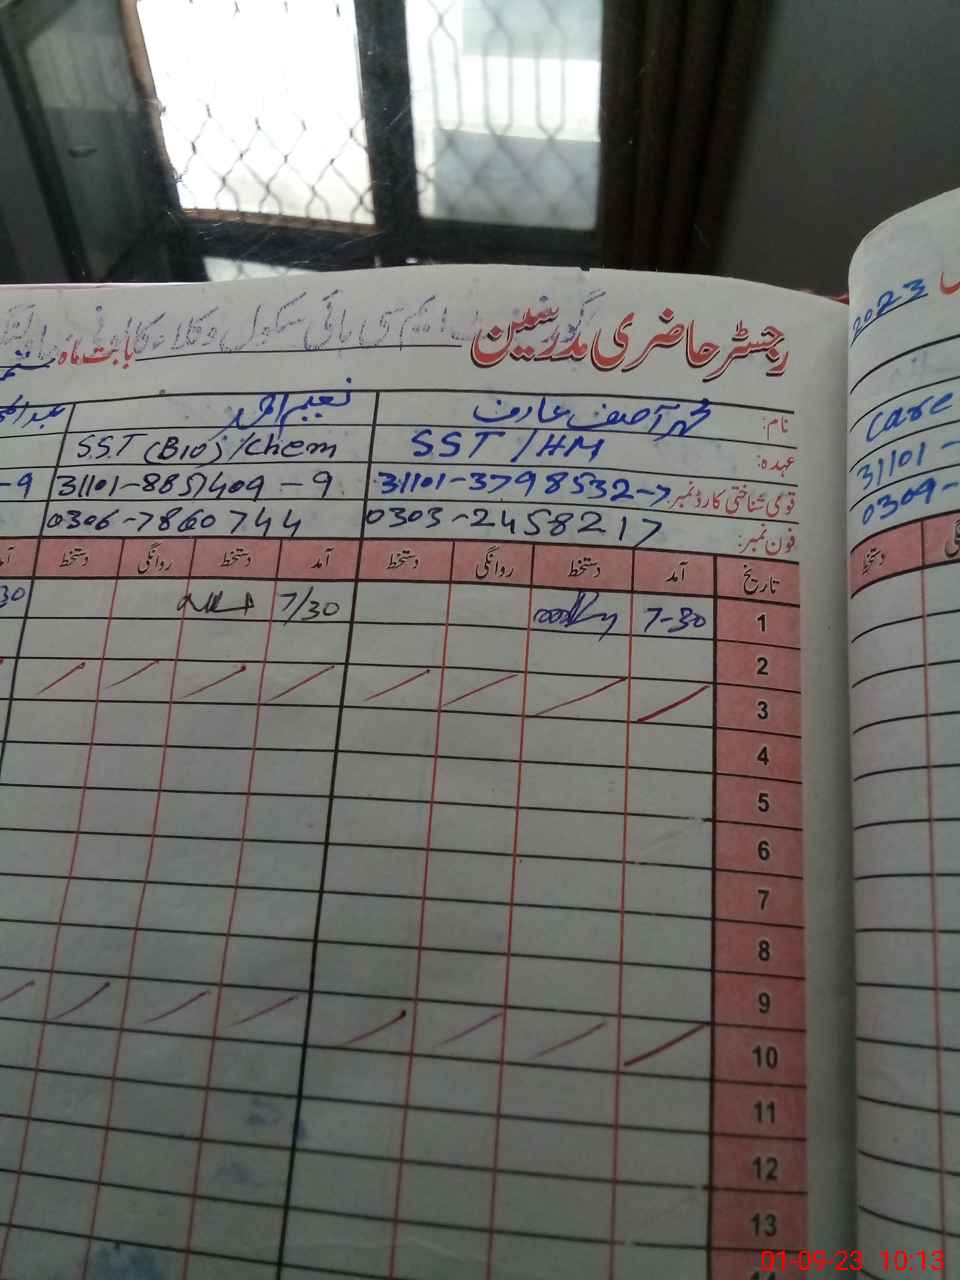 رجسٹر حاضری مدرسین
ایم سی ہائی سکول وکلاء کالونی
بابت ماہ
2023
نام: محمد آصف عارف نعیم احمد
عہدہ: SST / HM S.S.T (Bio)/Chem
care
قومی شناختی کارڈ نمبر: 31101-3798532-7 31101-8851409-9 -9
31101-
فون نمبر: 0303-2458217 0306-7860744
0309-
تاریخ آمد دستخط روانگی دستخط آمد دستخط روانگی دستخط
دستخط
1 7-30 7/30 30
2
3
4
5
6
7
8
9
10
11
12
13
01-09-23 10:13